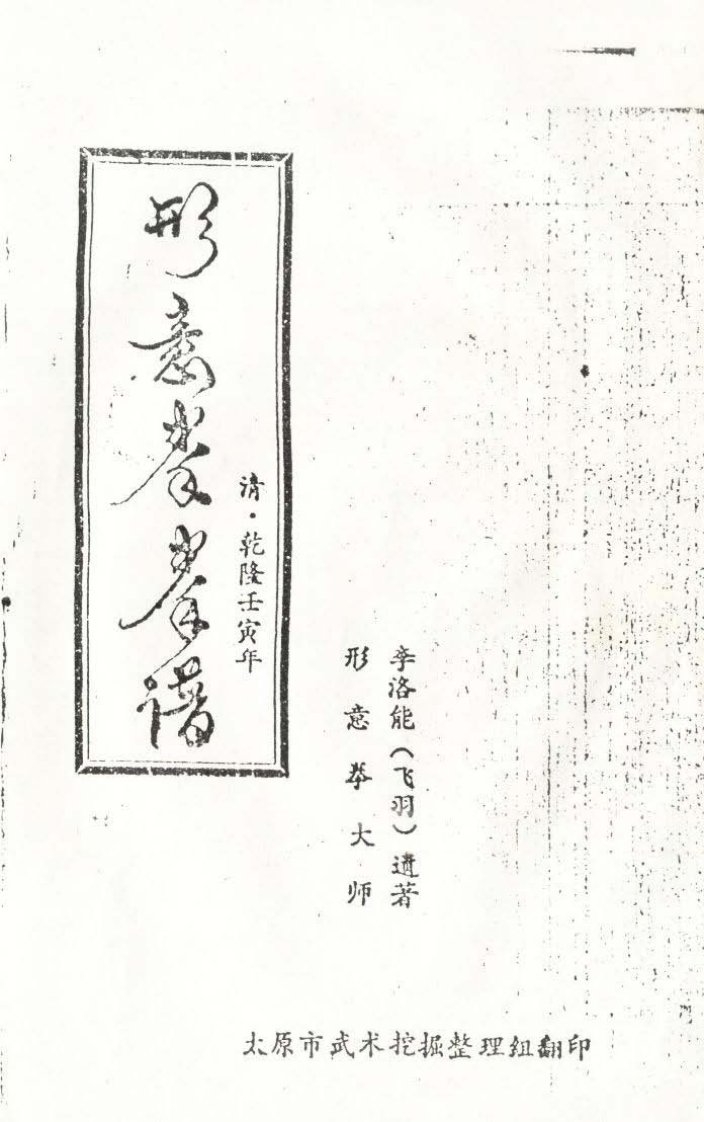 形意拳拳谱
清·乾隆壬寅年
形意拳大师
李洛能(飞羽)遗著
太原市武术挖掘整理组翻印